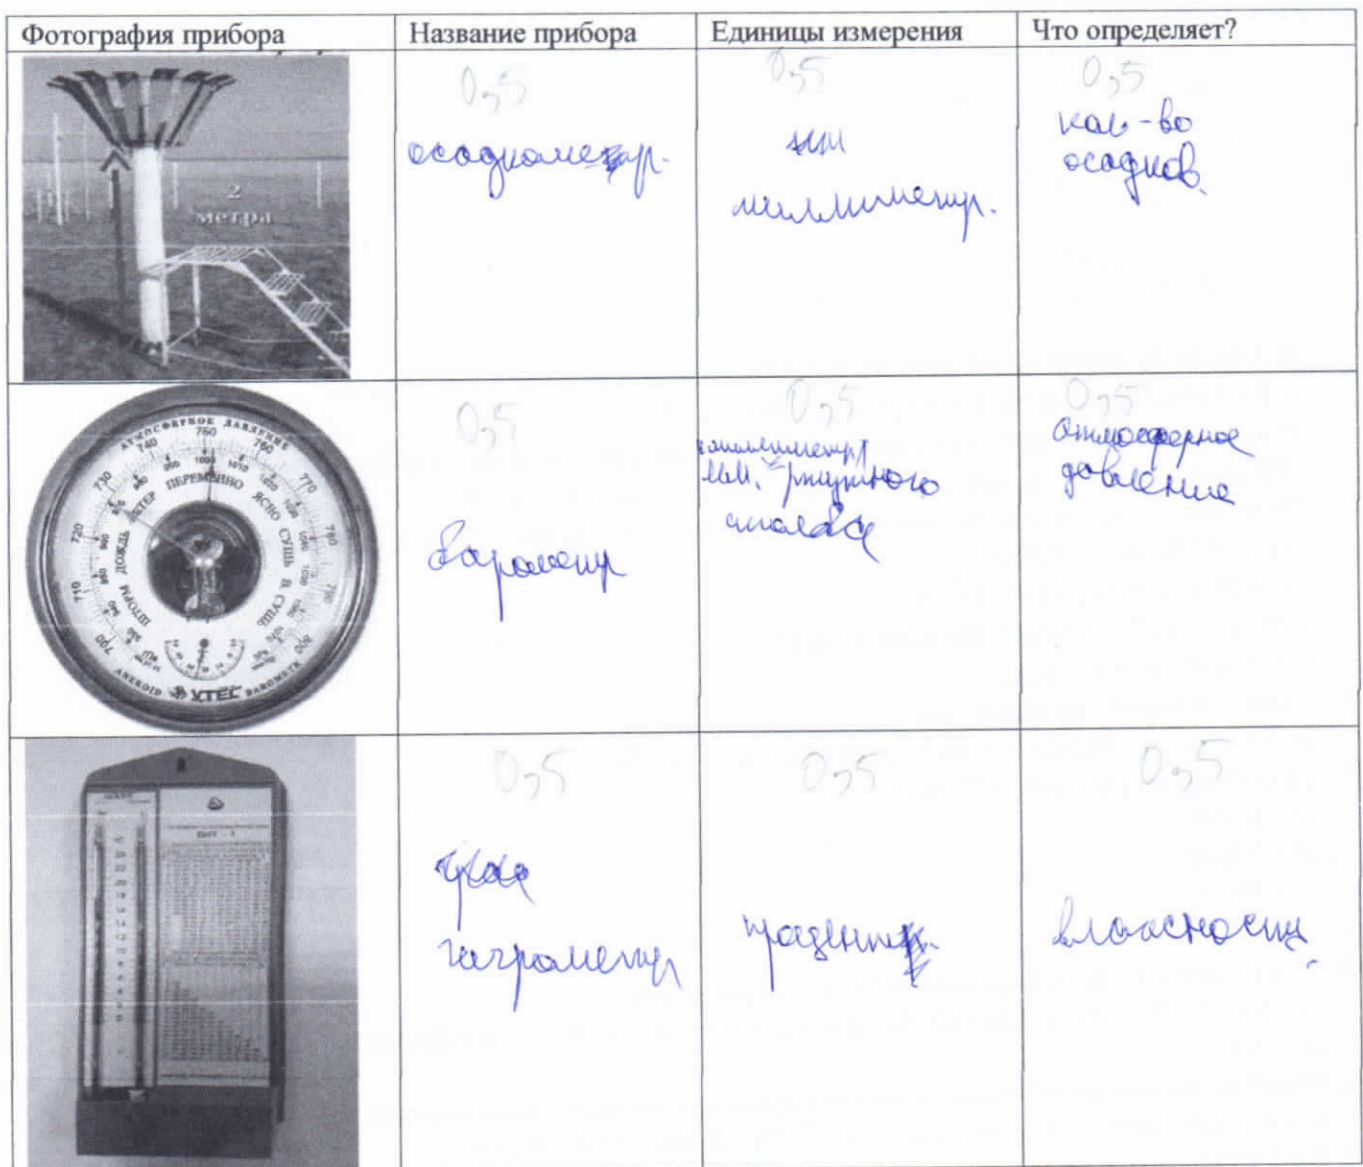 Фотография прибора
Название прибора
Единицы измерения
Что определяет?
2
метра
0,5
осадкометр.
0,5
мм
миллиметр.
0,5
кол-во
осадков.
АТМОСФЕРНОЕ ДАВЛЕНИЕ
700 710 720 730 740 750 760 770 780 790 800
ШТОРМ ДОЖДЬ ВЕТЕР ПЕРЕМЕННО ЯСНО СУШЬ В. СУШЬ
ANEROID UTEC BAROMETR
0,5
барометр
0,5
мм. ртутного
столба
0,5
Атмосферное
давление
0,5
гигрометр
0,5
процент
0,5
влажность.